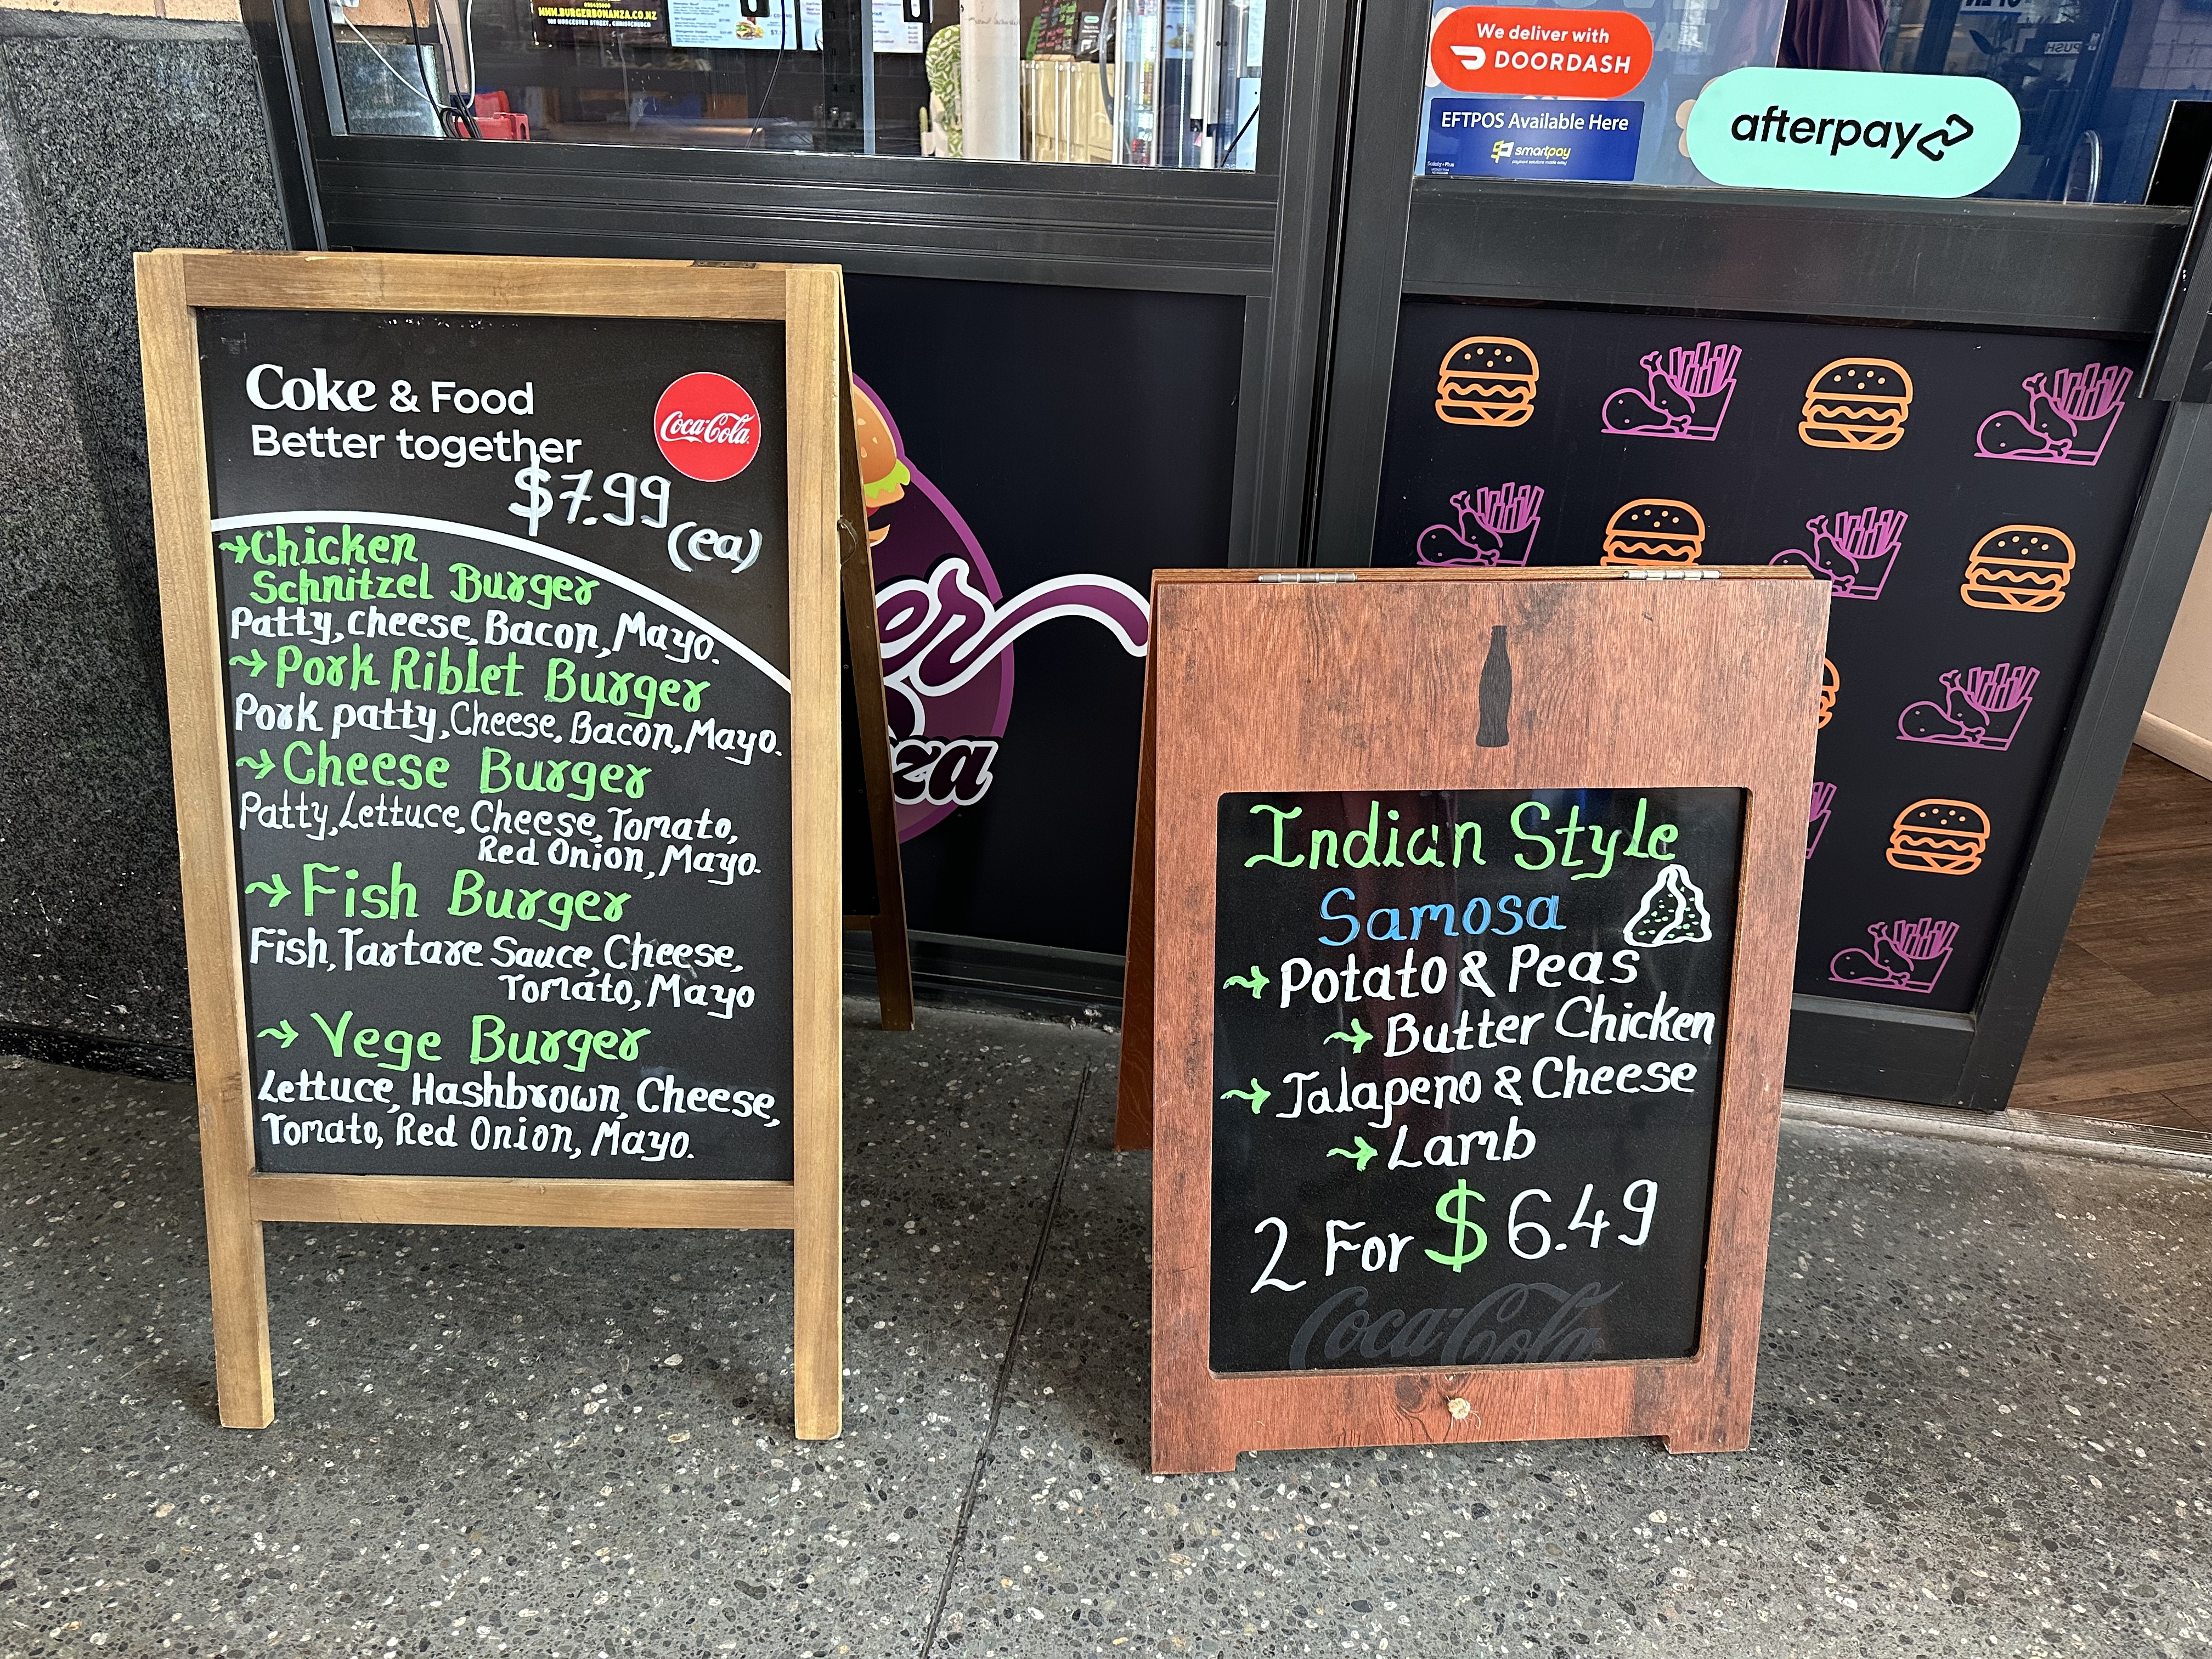 WWW.BURGERBONANZA.CO.NZ
We deliver with
DOORDASH
EFTPOS Available Here
smartpay
afterpay
PUSH
Coke & Food
Better together
Coca-Cola
$7.99
(ea)
→Chicken
Schnitzel Burger
Patty, cheese, Bacon, Mayo.
→Pork Riblet Burger
Pork patty, Cheese, Bacon, Mayo.
→Cheese Burger
Patty, Lettuce, Cheese, Tomato,
Red Onion, Mayo.
→Fish Burger
Fish, Tartare Sauce, Cheese,
Tomato, Mayo
→Vege Burger
Lettuce, Hashbrown, Cheese,
Tomato, Red Onion, Mayo.
er
za
Indian Style
Samosa
→Potato & Peas
→Butter Chicken
→Jalapeno & Cheese
→Lamb
2 For $6.49
Coca-Cola